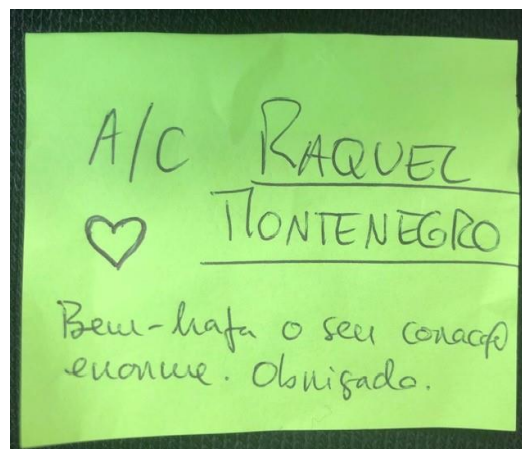 A/C RAQUEL
MONTENEGRO
Bem-haja o seu coração
enorme. Obrigado.